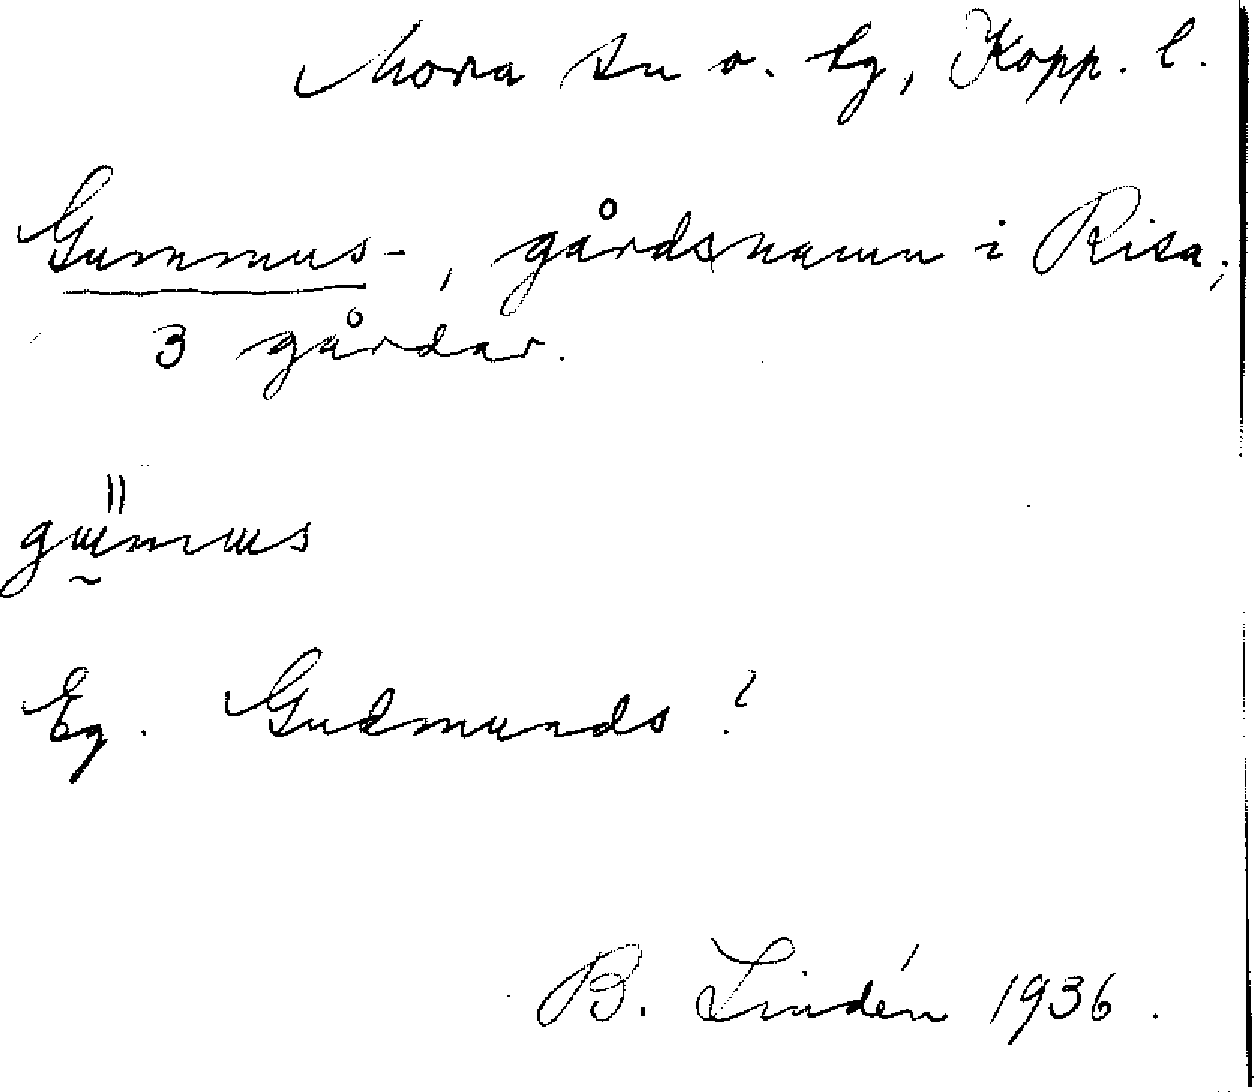 Mora sn o. tg, Kopp. l.
Gummus-, gårdsnamn i Risa;
3 gårdar.
Eg. Gudmunds?
B. Lindén 1936.